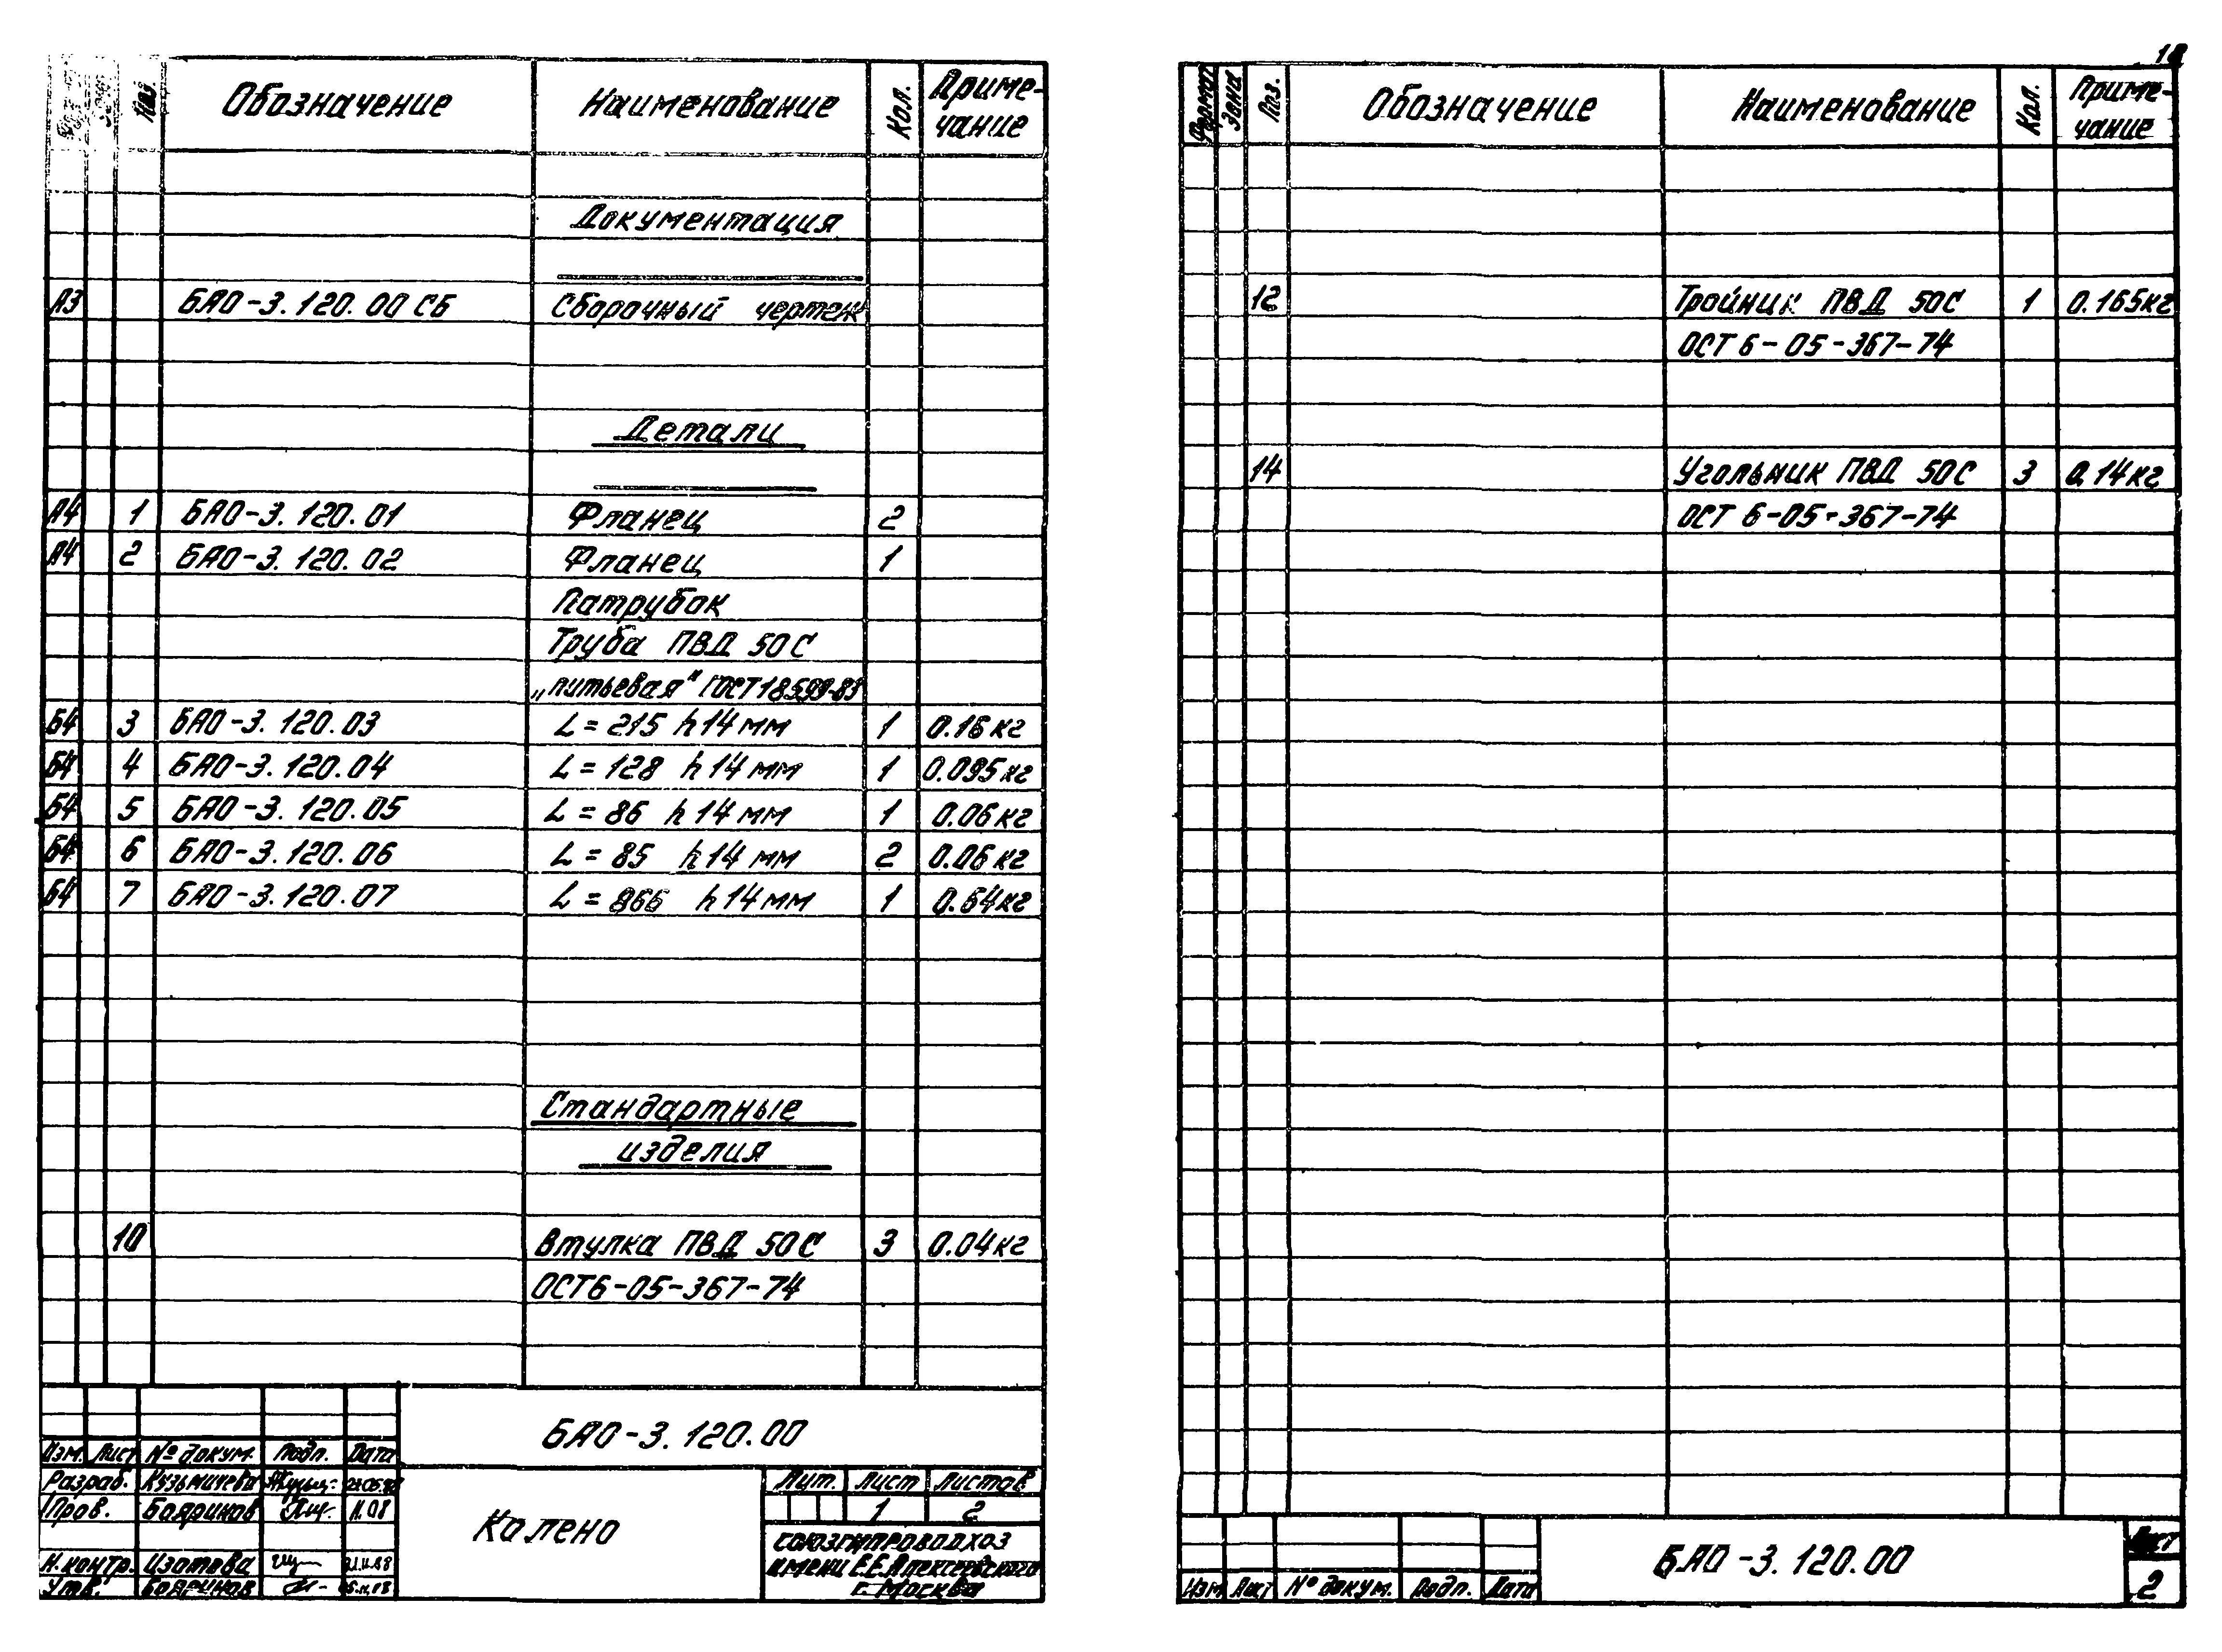 Поз. Обозначение Наименование Кол. Приме-
чание
Документация
А3 БАО-3.120.00 СБ Сборочный чертеж
Детали
А4 1 БАО-3.120.01 Фланец 2
А4 2 БАО-3.120.02 Фланец 1
Патрубок
Труба ПВД 50С
„питьевая" ГОСТ 18599-83
Б4 3 БАО-3.120.03 L = 215 h14 мм 1 0.16 кг
Б4 4 БАО-3.120.04 L = 128 h14 мм 1 0.095 кг
Б4 5 БАО-3.120.05 L = 86 h14 мм 1 0.06 кг
Б4 6 БАО-3.120.06 L = 85 h14 мм 2 0.06 кг
Б4 7 БАО-3.120.07 L = 866 h14 мм 1 0.64 кг
Стандартные
изделия
10 Втулка ПВД 50С 3 0.04 кг
ОСТ 6-05-367-74
БАО-3.120.00
Изм. Лист № докум. Подп. Дата
Разраб. Кузьмичева
Пров. Бояринов 11.08
Н.контр. Изотова
Утв. Бояринов
Колено
Лит. Лист Листов
1 2
СОЮЗГИПРОВОДХОЗ
имени Е.Е.Алексеевского
г. Москва
18
Формат Зона Поз. Обозначение Наименование Кол. Приме-
чание
12 Тройник ПВД 50С 1 0.165 кг
ОСТ 6-05-367-74
14 Угольник ПВД 50С 3 0.14 кг
ОСТ 6-05-367-74
БАО-3.120.00
Лист
2
Изм Лист № докум. Подп. Дата